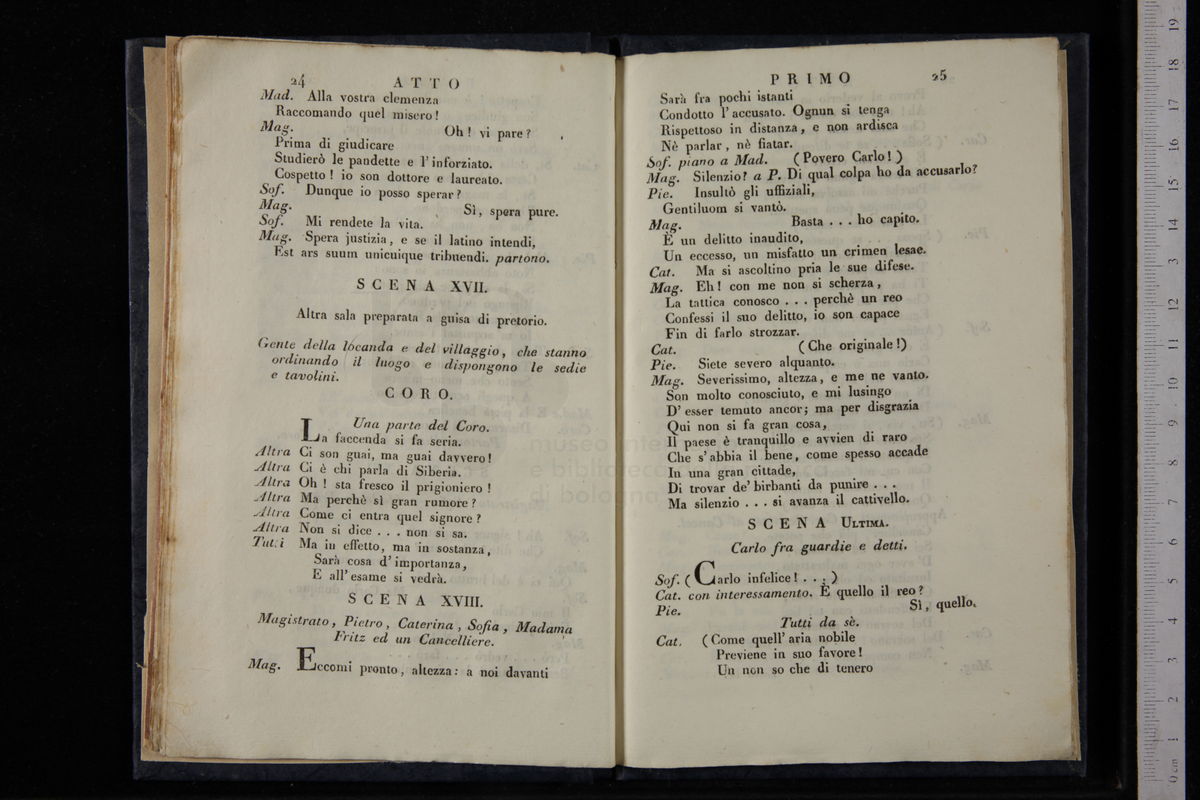 24 ATTO
Mad. Alla vostra clemenza
Raccomando quel misero!
Mag. Oh! vi pare?
Prima di giudicare
Studierò le pandette e l'inforziato.
Cospetto! io son dottore e laureato.
Sof. Dunque io posso sperar?
Mag. Sì, spera pure.
Sof. Mi rendete la vita.
Mag. Spera justizia, e se il latino intendi,
Est ars suum unicuique tribuendi. partono.
SCENA XVII.
Altra sala preparata a guisa di pretorio.
Gente della locanda e del villaggio, che stanno
ordinando il luogo e dispongono le sedie
e tavolini.
CORO.
Una parte del Coro.
La faccenda si fa seria.
Altra Ci son guai, ma guai davvero!
Altra Ci è chi parla di Siberia.
Altra Oh! sta fresco il prigioniero!
Altra Ma perchè sì gran rumore?
Altra Come ci entra quel signore?
Altra Non si dice . . . non si sa.
Tutti Ma in effetto, ma in sostanza,
Sarà cosa d'importanza,
E all'esame si vedrà.
SCENA XVIII.
Magistrato, Pietro, Caterina, Sofia, Madama
Fritz ed un Cancelliere.
Mag. Eccomi pronto, altezza: a noi davanti
PRIMO 25
Sarà fra pochi istanti
Condotto l'accusato. Ognun si tenga
Rispettoso in distanza, e non ardisca
Nè parlar, nè fiatar.
Sof. piano a Mad. (Povero Carlo!)
Mag. Silenzio? a P. Di qual colpa ho da accusarlo?
Pie. Insultò gli uffiziali,
Gentiluom si vantò.
Mag. Basta . . . ho capito.
È un delitto inaudito,
Un eccesso, un misfatto un crimen lesae.
Cat. Ma si ascoltino pria le sue difese.
Mag. Eh! con me non si scherza,
La tattica conosco . . . perchè un reo
Confessi il suo delitto, io son capace
Fin di farlo strozzar.
Cat. (Che originale!)
Pie. Siete severo alquanto.
Mag. Severissimo, altezza, e me ne vanto.
Son molto conosciuto, e mi lusingo
D'esser temuto ancor; ma per disgrazia
Qui non si fa gran cosa,
Il paese è tranquillo e avvien di raro
Che s'abbia il bene, come spesso accade
In una gran cittade,
Di trovar de'birbanti da punire . . .
Ma silenzio . . . si avanza il cattivello.
SCENA ULTIMA.
Carlo fra guardie e detti.
Sof. (Carlo infelice! . . .)
Cat. con interessamento. È quello il reo?
Pie. Sì, quello.
Tutti da sè.
Cat. (Come quell'aria nobile
Previene in suo favore!
Un non so che di tenero